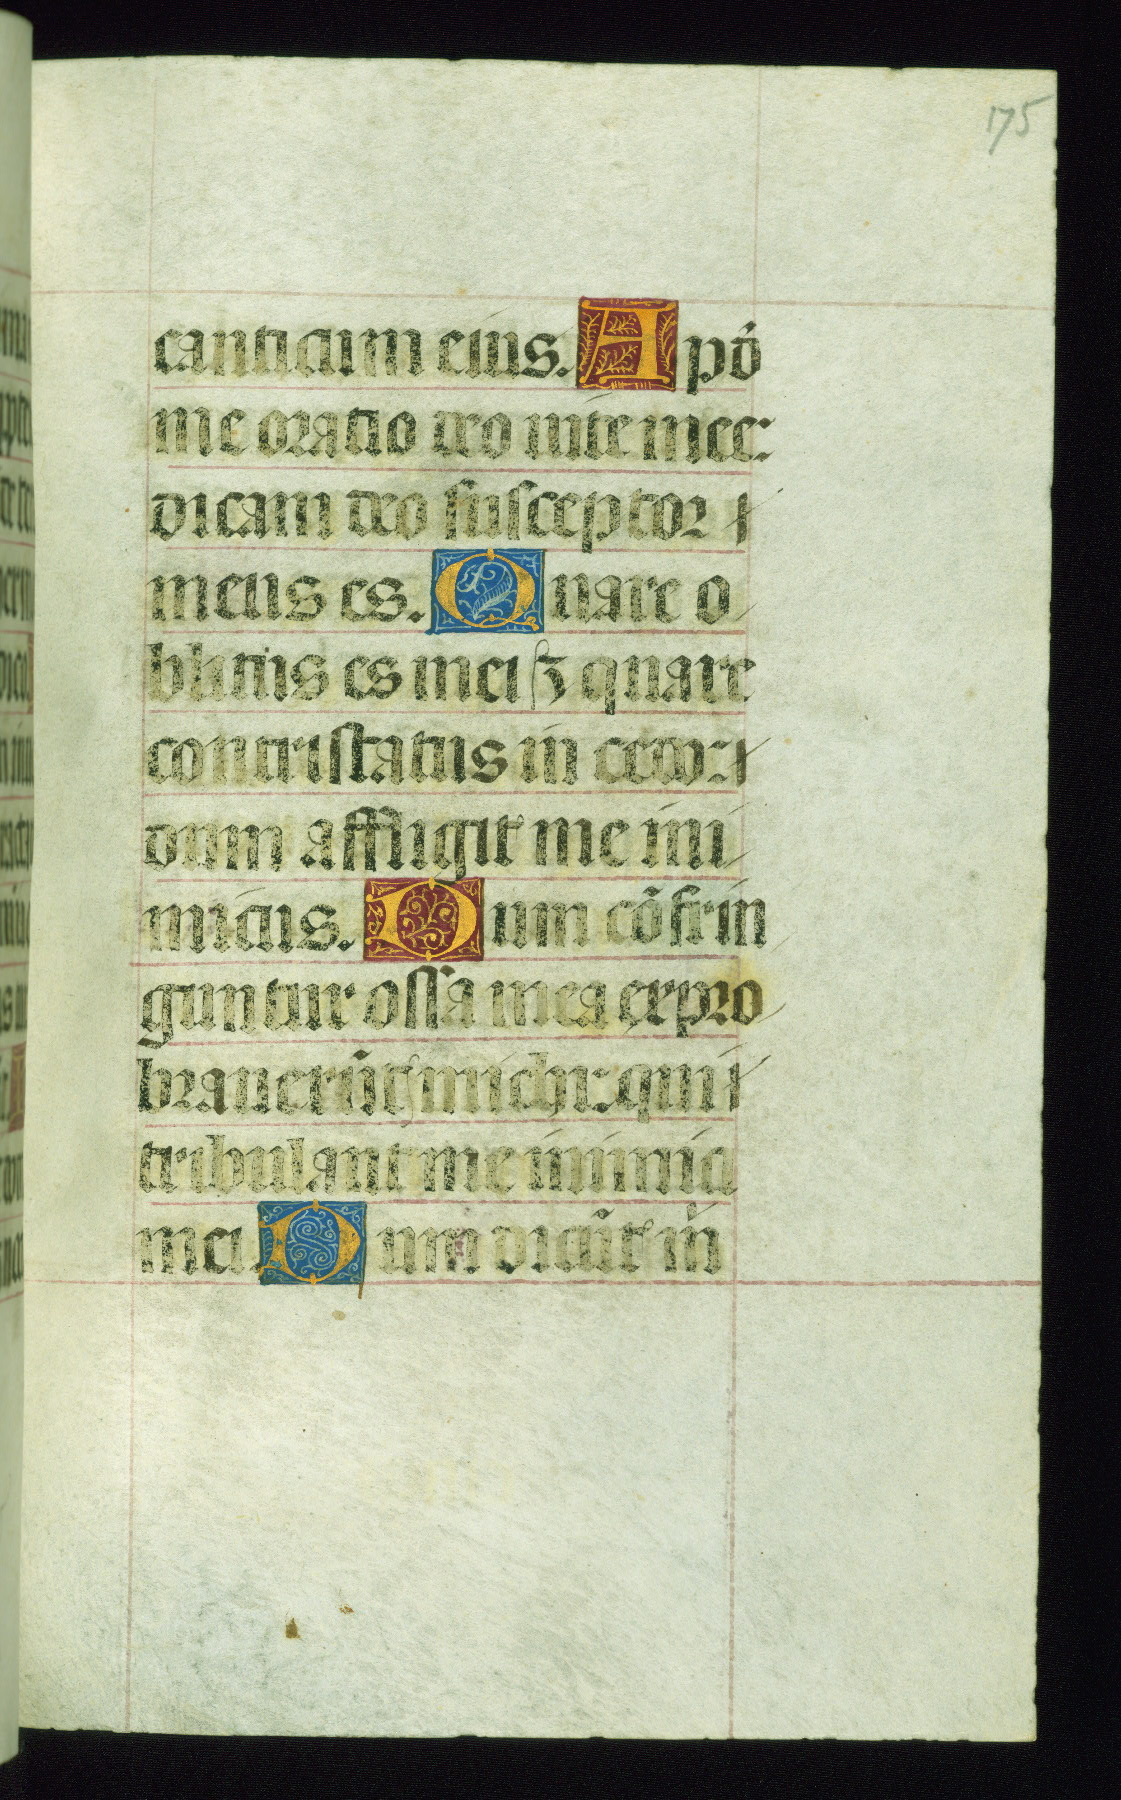 175
canticum eius. A pð
me oratio deo uite mee:
dicam deo susceptor
meus es. Quare o
blitus es mei ⁊ quare
contristatus incedo:
dum affligit me ini
micus. Dum cõfrin
guntur ossa mea expro
brauerũt michi: qui
tribulant me inimici
mei. Dum dicũt m̃